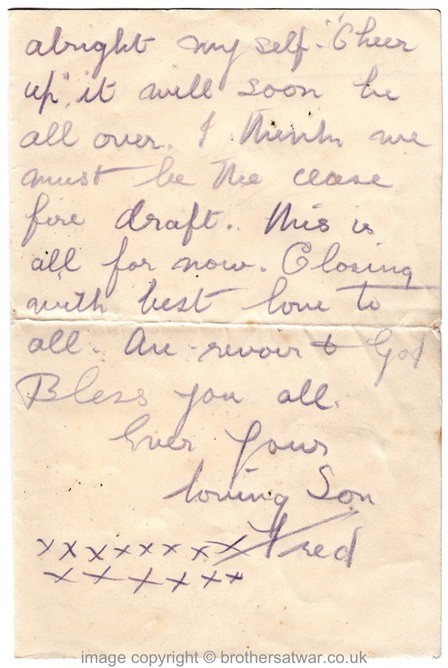 alright my self. "Cheer
up", it will soon be
all over. I think we
must be the cease
fire draft. This is
all for now. Closing
with best love to
all. Au-revoir & God
Bless you all.
Ever Your
loving Son
Fred
xxxxxxxx
xxxxxxx
image copyright © brothersatwar.co.uk